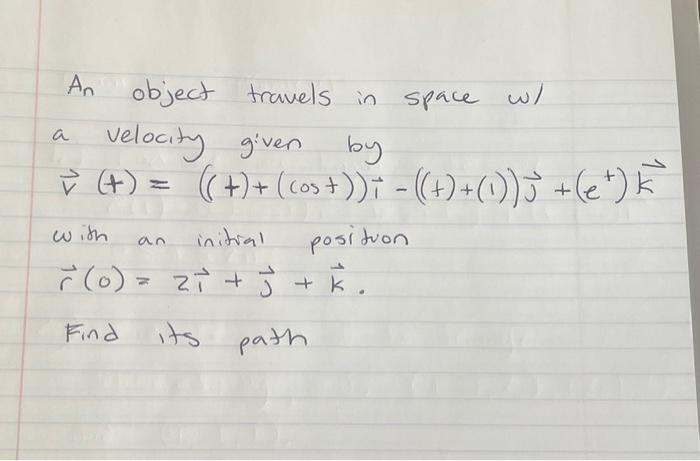 An object travels in space w/
a velocity given by
v⃗ (t) = ((t)+(cost))i⃗ - ((t)+(1))j⃗ +(eᵗ) k⃗
with an initial position
r⃗(0) = 2i⃗ + j⃗ + k⃗.
Find its path